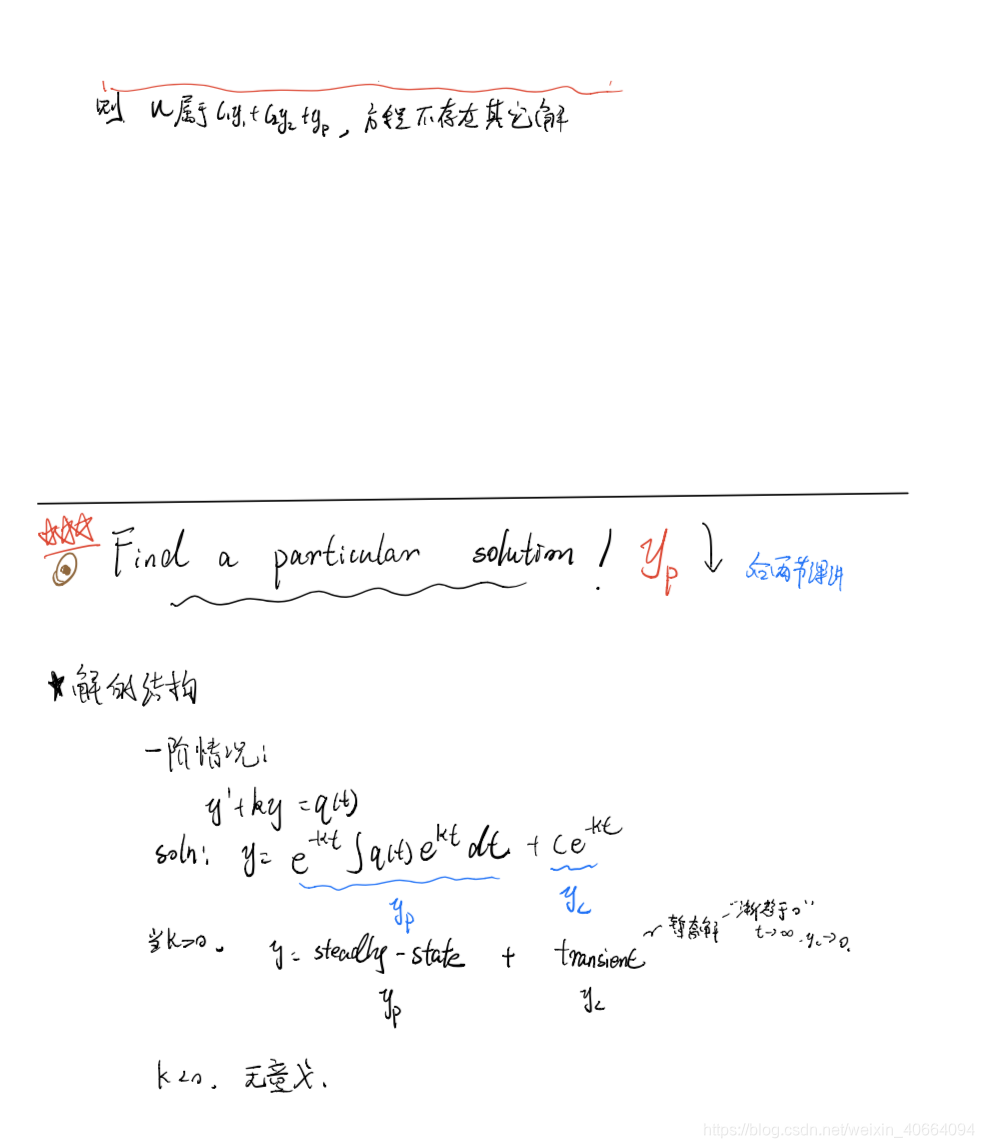 则 u属于 c₁y₁+c₂y₂+yₚ, 方程不存在其它解
☆☆☆ Find a particular solution! yₚ ↓ 后两节课讲
★解的结构
一阶情况:
y'+ky=q(t)
soln: y= e^{-kt}∫q(t)e^{kt}dt + ce^{-kt}
yₚ y_c
当k>0. y= steady-state + transient ~ 暂态解 "渐趋于0"
t→∞, y_c→0.
yₚ y_c
k<0. 无意义.
https://blog.csdn.net/weixin_40664094